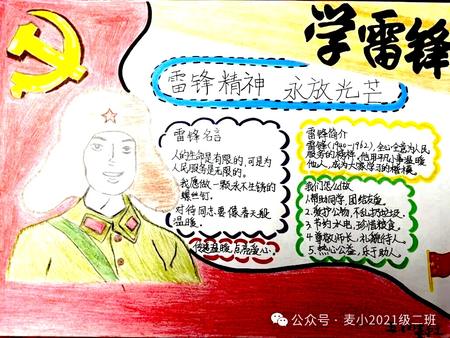 学雷锋
雷锋精神 永放光芒
雷锋名言
人的生命是有限的,可是为
人民服务是无限的。
我愿做一颗永不生锈的
螺丝钉。
对待同志要像春天般
温暖。
传递温暖,点亮爱心。
雷锋简介
雷锋(1940-1962),全心全意为人民
服务的榜样,他用平凡小事温暖
他人,成为大家学习的楷模。
我们怎么做
1.帮助同学,团结友爱。
2.爱护公物,不乱扔垃圾。
3.节约水电,珍惜粮食。
4.尊敬师长,礼貌待人。
5.热心公益,乐于助人。
公众号·麦小2021级二班